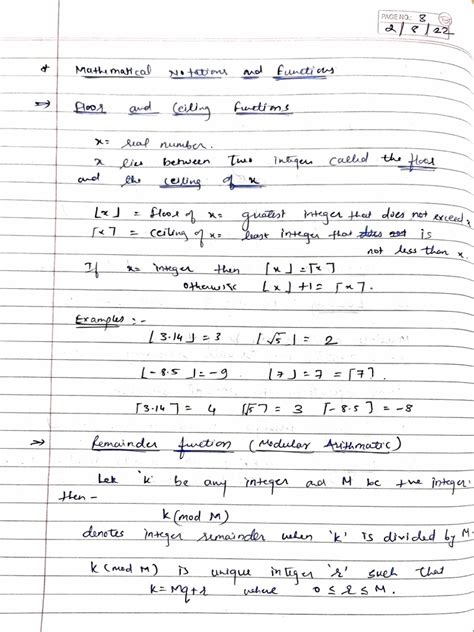 PAGE NO.: 8
2/8/22
* Mathematical Notations and Functions
⇒ Floor and Ceiling Functions
x= real number.
x lies between Two integers called the floor
and the ceiling of x
⌊x⌋ = floor of x= greatest integer that does not exceed x
⌈x⌉ = ceiling of x= least integer that does not is
not less than x.
If x= integer then ⌊x⌋=⌈x⌉
otherwise ⌊x⌋+1=⌈x⌉.
Examples :-
⌊3.14⌋=3 ⌊√5⌋= 2
⌊-8.5⌋=-9 ⌊7⌋=7=⌈7⌉.
⌈3.14⌉= 4 ⌈√5⌉= 3 ⌈-8.5⌉=-8
⇒ Remainder function (Modular Arithmatic)
Let 'k' be any integer ad M be +ve integer
then-
k(mod M)
denotes integer remainder when 'k' is divided by M.
k(mod M) is unique integer 'r' such that
k=Mq+r where 0≤r≤M.